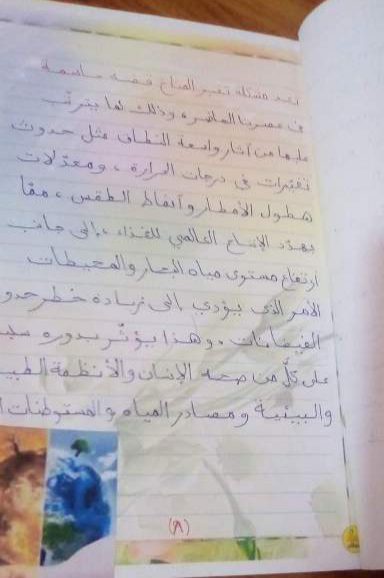 تعد مشكلة تغير المناخ قضية حاسمة
في عصرنا الحاضر، وذلك لما يترتب
عليها من آثار واسعة النطاق مثل حدوث
تغيرات في درجات الحرارة، ومعدّلات
هطول الأمطار وأنماط الطقس، ممّا
يهدّد الإنتاج العالمي للغذاء، إلى جانب
ارتفاع مستوى مياه البحار والمحيطات
الأمر الذي يؤدي إلى زيادة خطر حدو
الفيضانات. وهذا يؤثّر بدوره سلب
على كلّ من صحة الإنسان والأنظمة الطبيـ
والبيئية ومصادر المياه والمستوطنات ا
(٨)